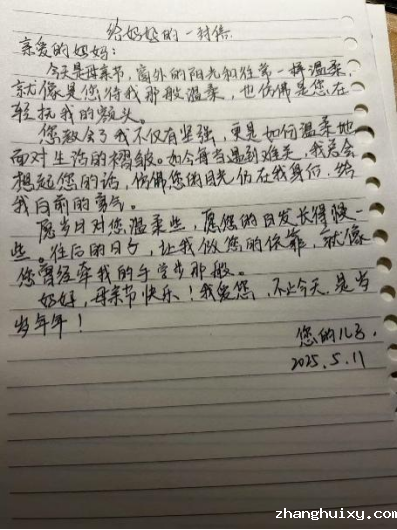 给妈妈的一封信
亲爱的妈妈：
今天是母亲节，窗外的阳光和往常一样温柔，
就像是您待我那般温柔，也仿佛是您在
轻抚我的额头。
您教会了我不仅有坚强，更是如何温柔地
面对生活的褶皱。如今每当遇到难关，我总会
想起您的话，仿佛您的目光仍在我身后，给
我向前的勇气。
愿岁月对您温柔些，愿您的白发长得慢一
些。往后的日子，让我做您的依靠，就像
您曾经牵我的手学步那般。
妈妈，母亲节快乐！我爱您，不止今天，是岁
岁年年！
您的儿子，
2025.5.11
zhanghuixy.com